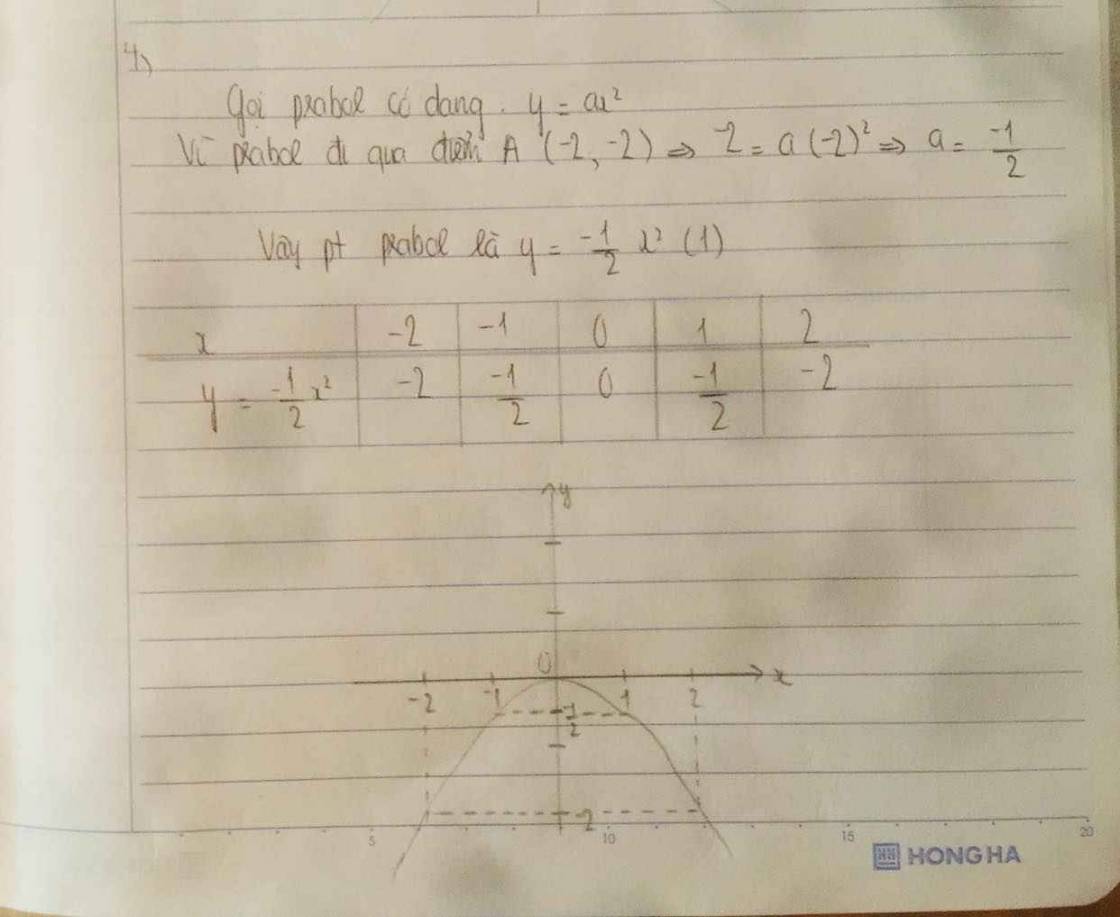 4)
Gọi prabol có dạng. y = ax²
Vì prabol đi qua điểm A (-2, -2) ⇒ -2 = a(-2)² ⇒ a = -1/2
Vậy pt prabol là y = -1/2 x² (1)
x -2 -1 0 1 2
y = -1/2 x² -2 -1/2 0 -1/2 -2
y
0 x
-2 -1 1 2
-1/2
-2
5 10 15 20
HH HONG HA